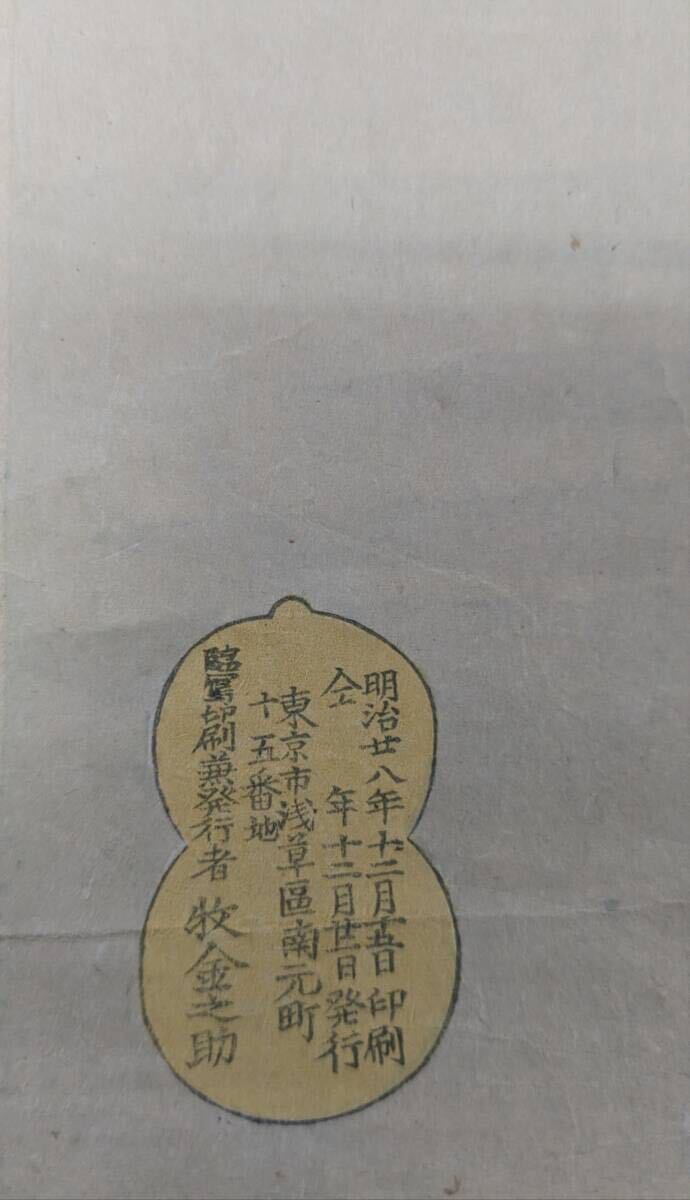 明治廿八年十二月十五日印刷
仝年十二月廿一日発行
東京市浅草區南元町
十五番地
臨寫印刷兼発行者 牧金之助